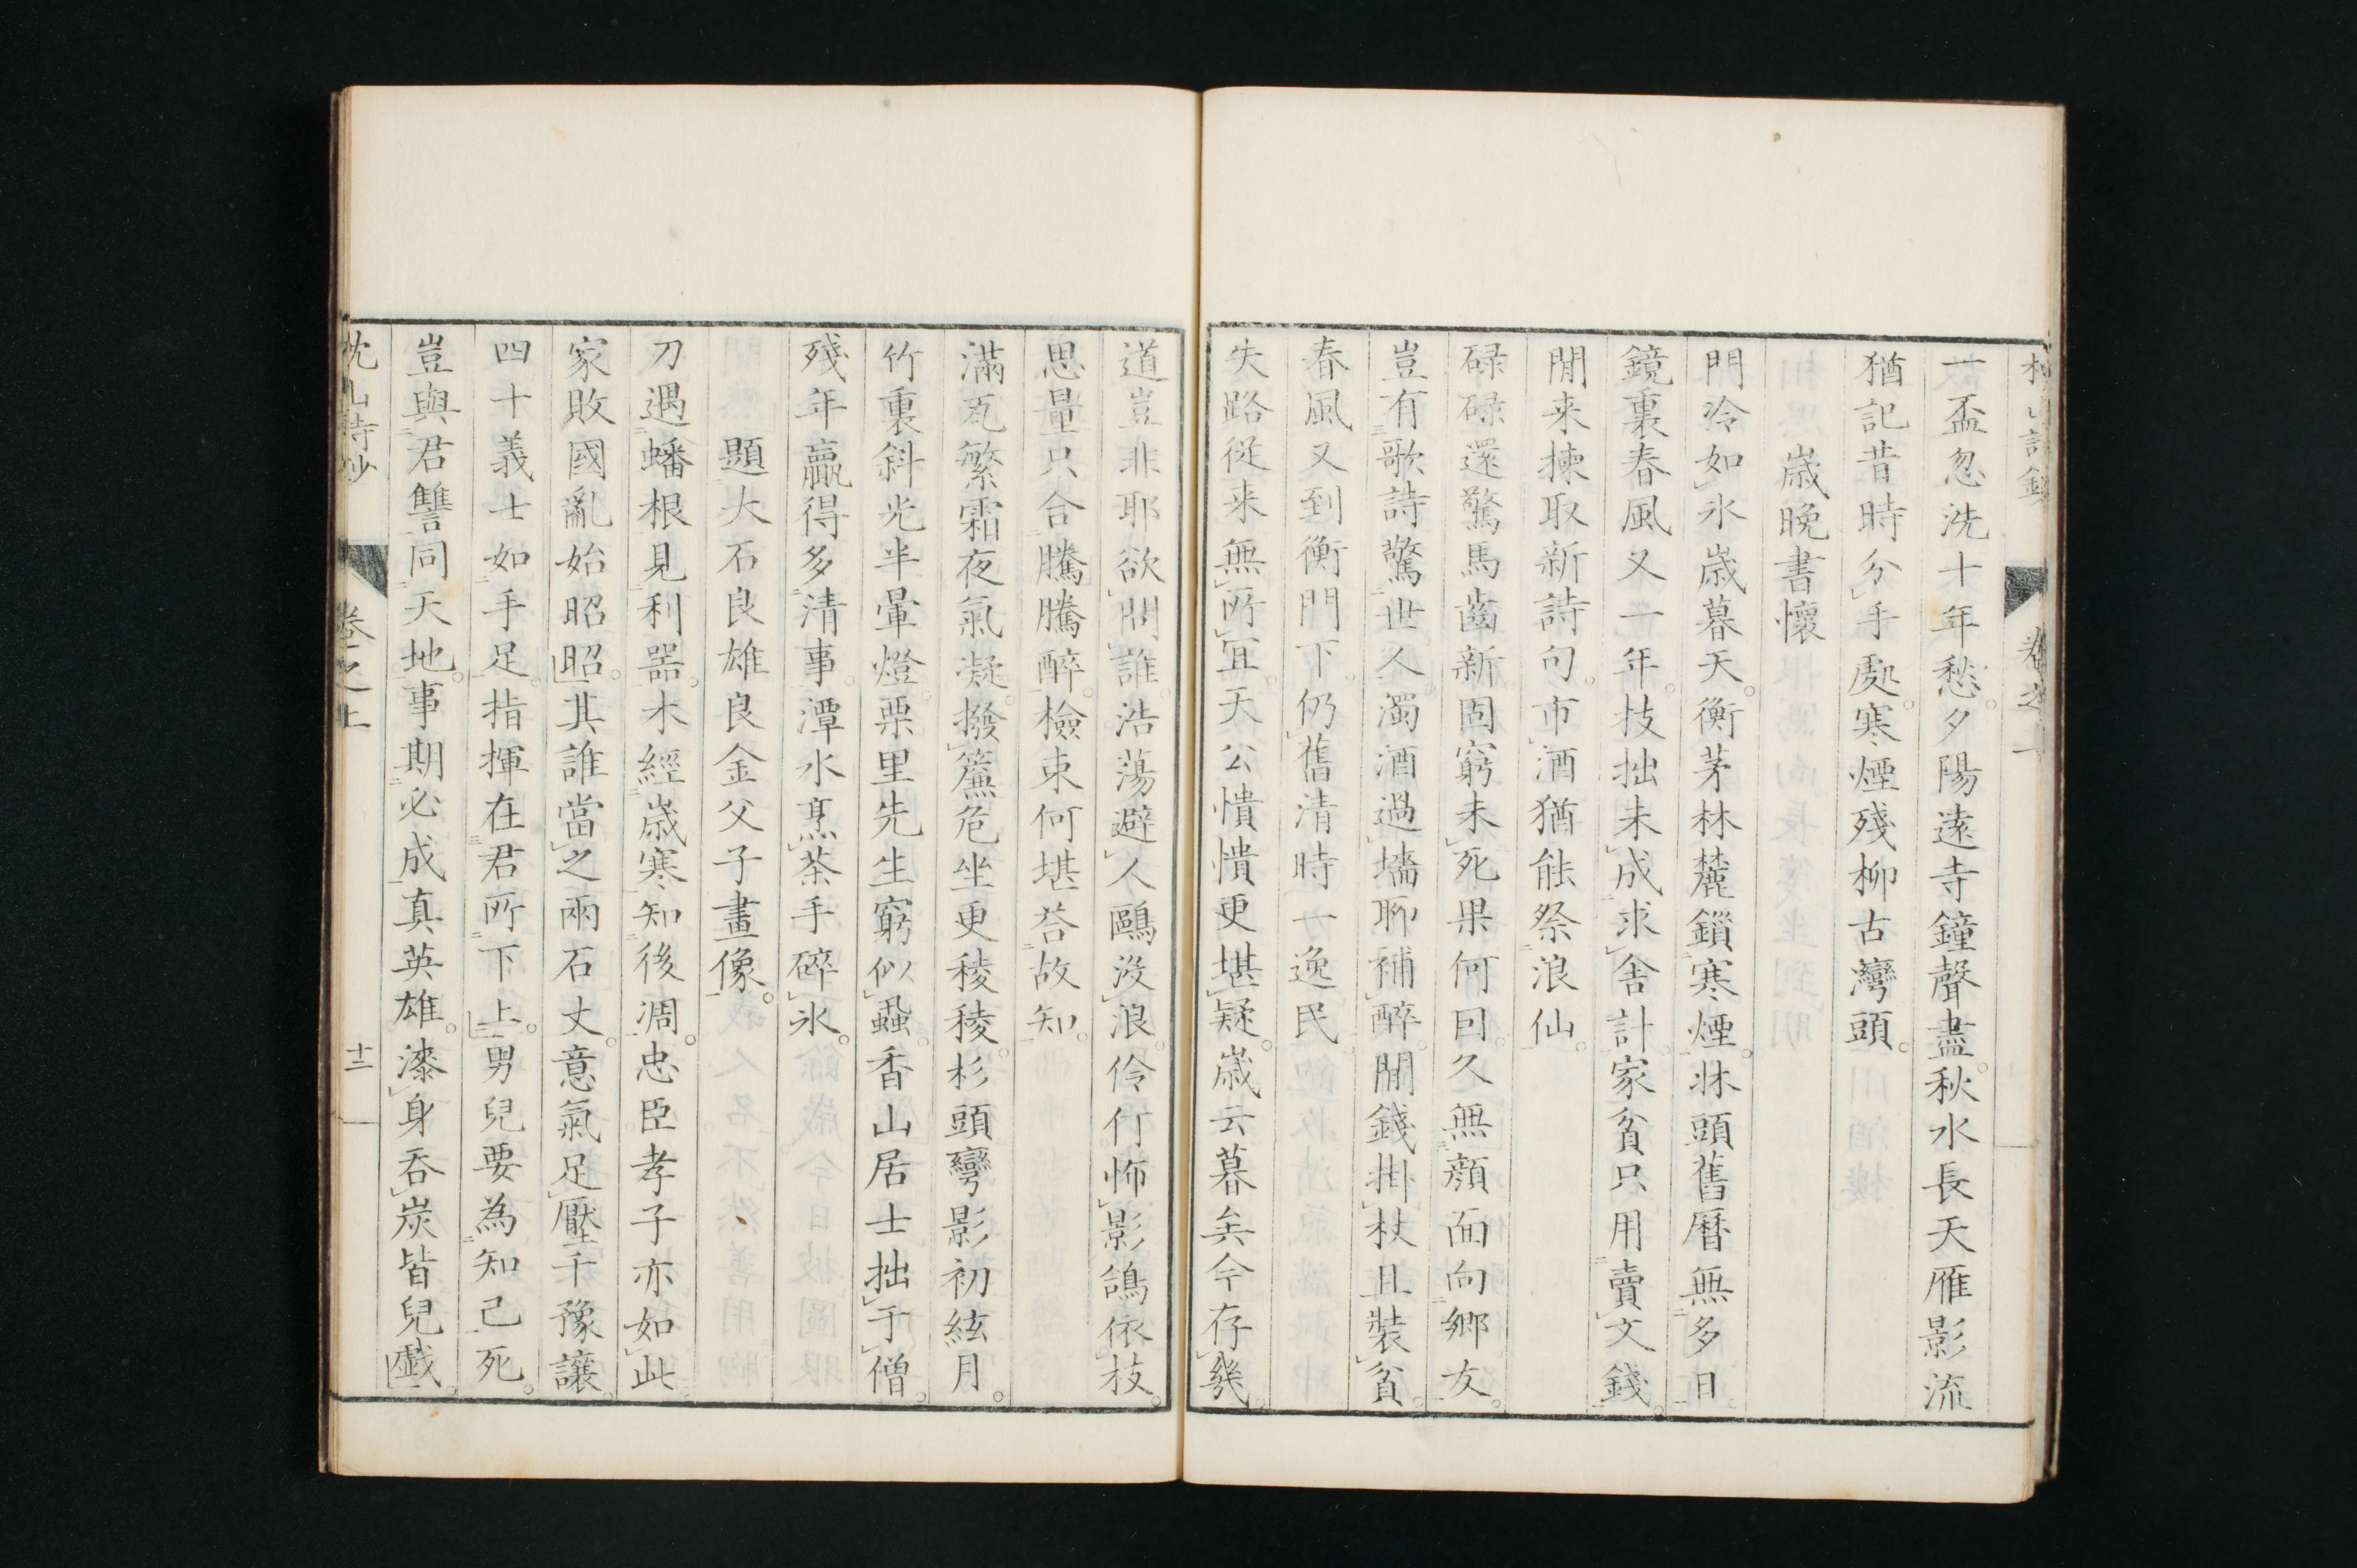 一盃忽洗十年愁。夕陽遠寺鐘聲盡。秋水長天雁影流
猶記昔時分手處。寒煙殘柳古灣頭。
歳晩書懷
門冷如氷歳暮天。衡茅林麓鎻寒煙。牀頭舊暦無多日
鏡裏春風又一年。技拙未成求舎計家貧只用賣文錢。
閒来揀取新詩句。市酒猶能祭浪仙。
碌碌還驚馬齒新。固窮未死果何因。久無顔面向郷友。
豈有歌詩驚世人。濁酒過墻聊補醉。閒錢掛杖且裝貧。
春風又到衡門下。仍舊清時一逸民。
失路從来無所宜。天公憒憒更堪疑。歳云暮矣今存幾。
道豈非耶欲問誰。浩蕩避人鷗沒浪。伶仃怖影鴿依枝。
思量只合騰騰醉。檢束何堪荅故知。
滿瓦繁霜夜氣凝。撥簾危坐更稜稜。杉頭彎影初絃月。
竹裏斜光半暈燈。栗里先生窮似蝨。香山居士拙于僧。
殘年贏得多清事。潭水烹茶手碎氷。
題大石良雄良金父子畫像。
刀遇蟠根見利器。木經歳寒知後凋。忠臣孝子亦如此。
家敗國亂始昭昭。昭其誰當之兩石丈。意氣足壓千豫讓。
四十義士如手足。指揮在君所下上。男兒要為知己死。
豈與君讐同天地。事期必成真英雄。漆身呑炭皆兒戲。
枕山詩鈔
卷之上
十二